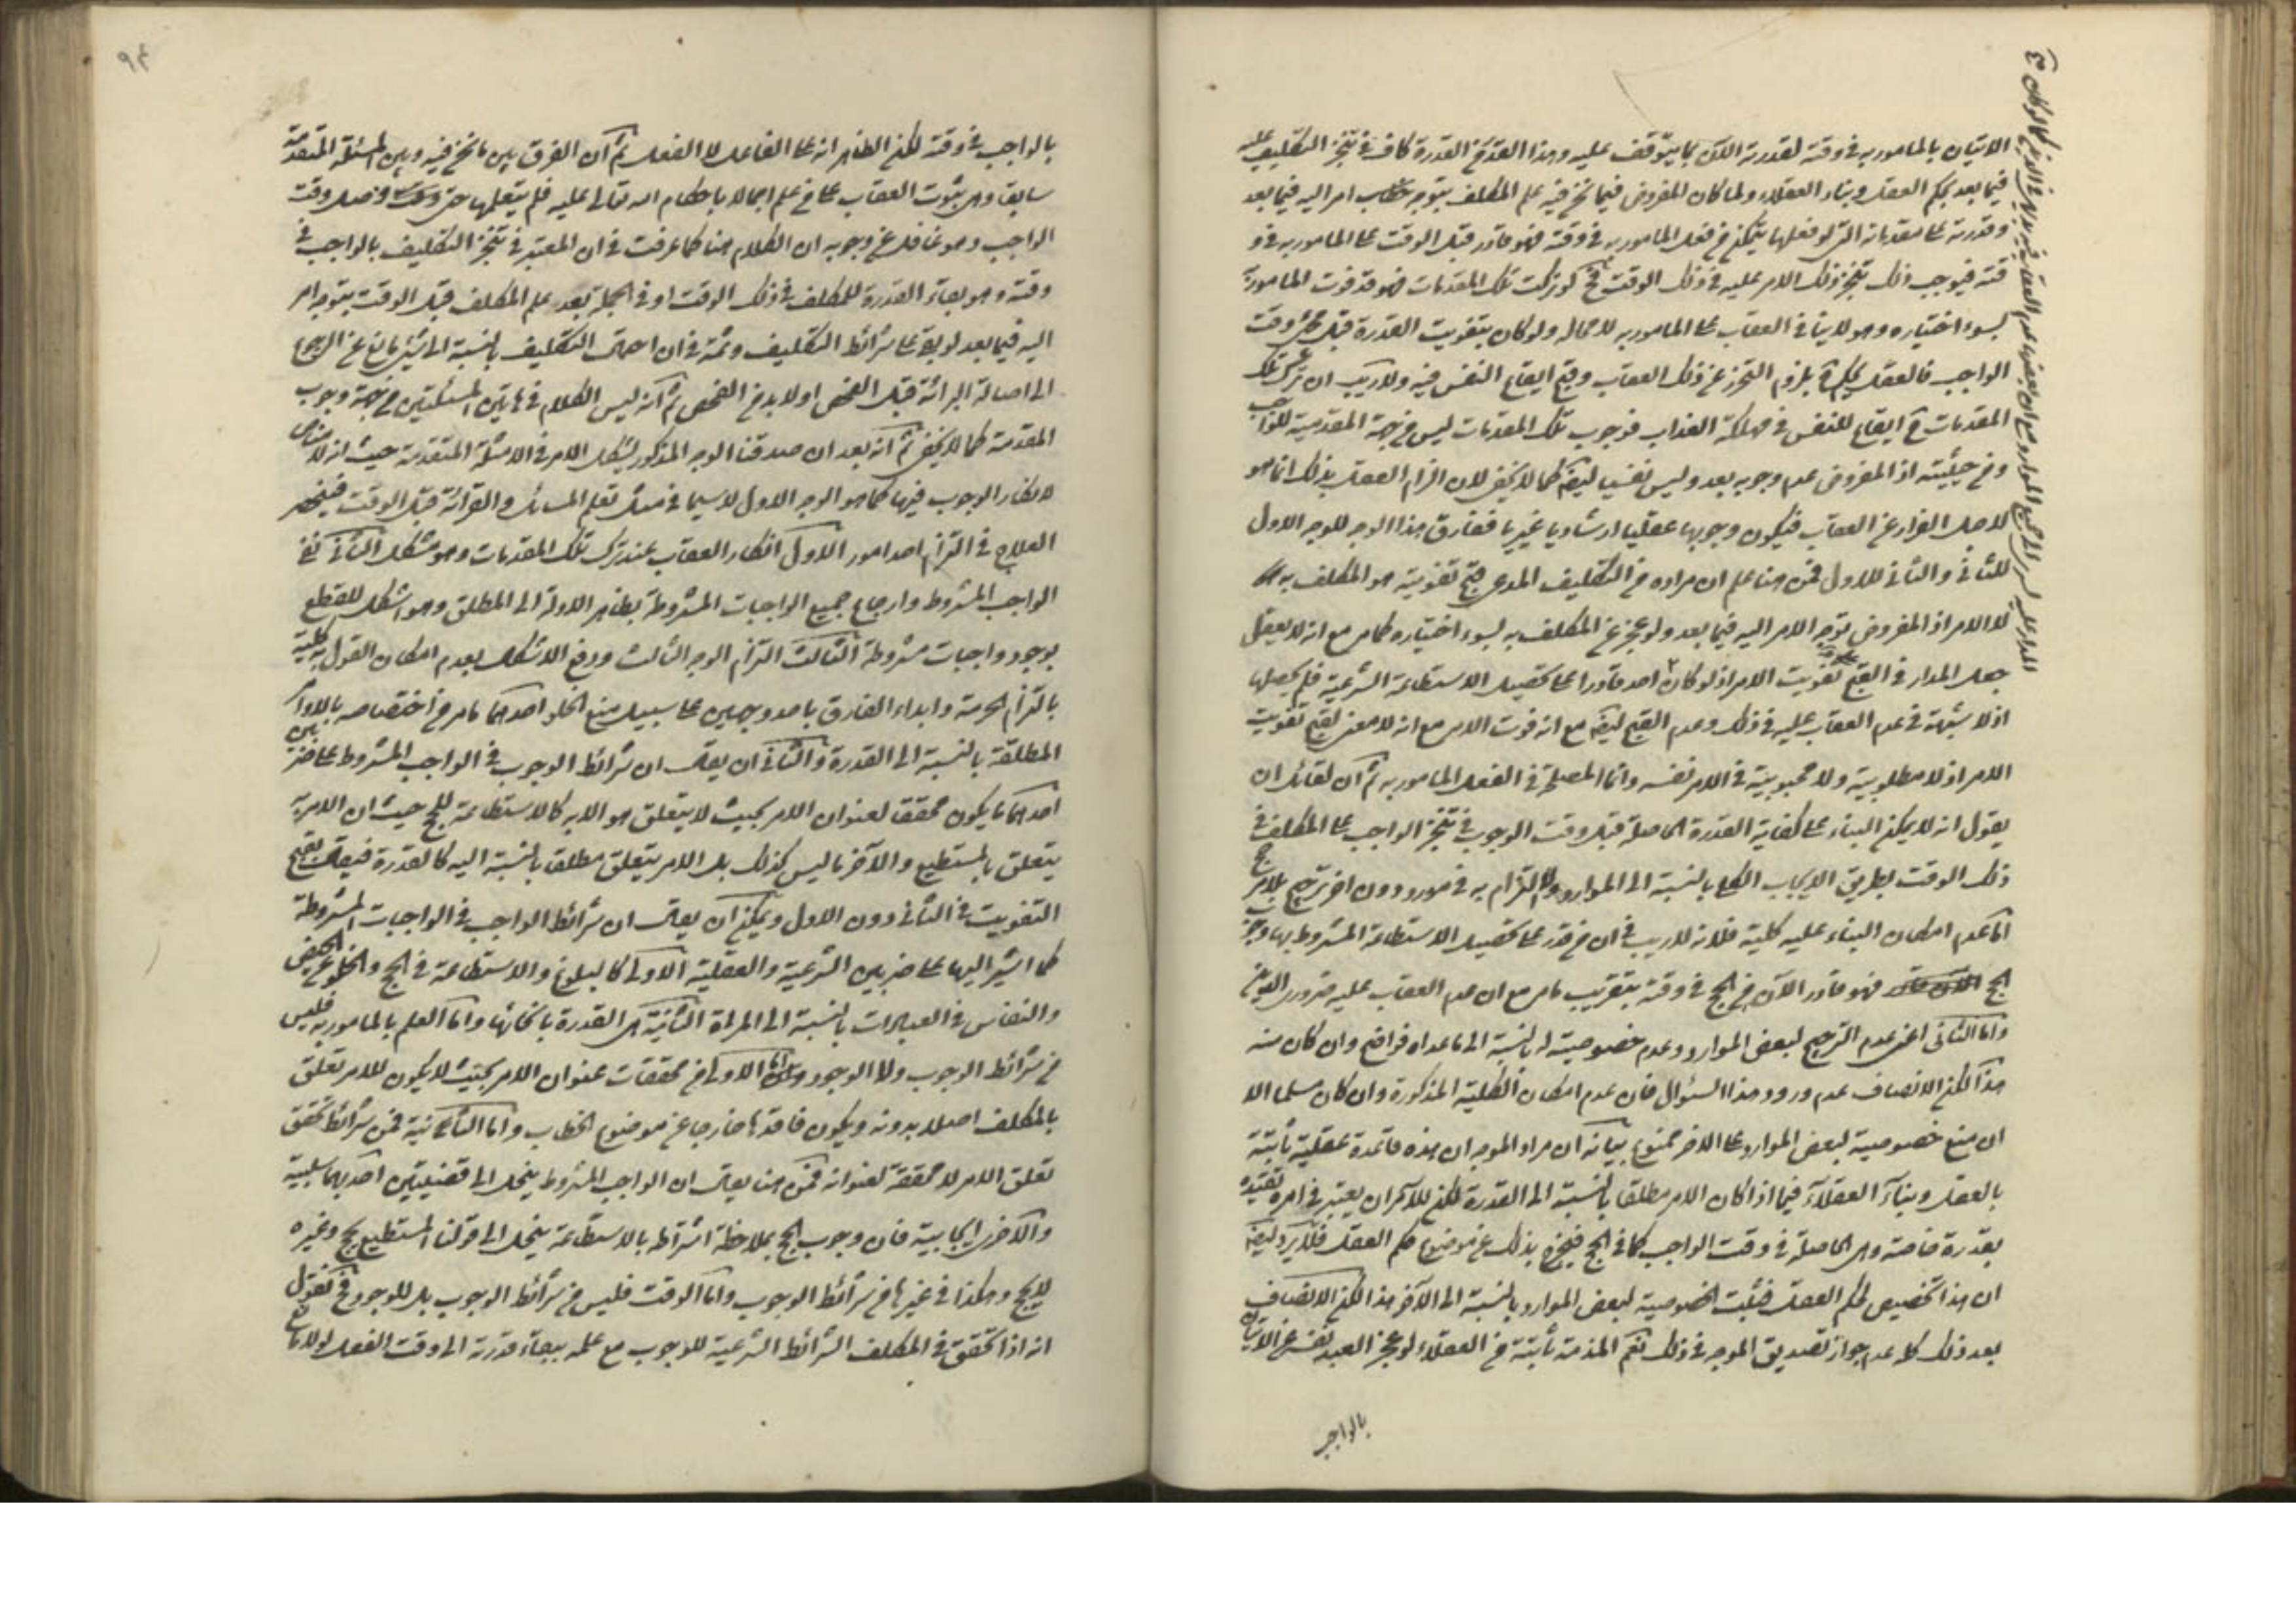 الاتيان بالمامور به فى وقته لقدرته الآن بما يتوقف عليه وهذا القدر من القدرة كاف فى تنجز التكليف عليه
فيما بعد بحكم العقل وبناء العقلاء ولما كان المفروض فيما نحن فيه علم المكلف بتوجه خطاب امر اليه فيما بعد
وقدرته على مقدماته التى لو فعلها يتمكن من فعل المامور به فى وقته فهو قادر قبل الوقت على المامور به فى و
قته فيوجب ذلك تنجز ذلك الامر عليه فى ذلك الوقت فح لو تركت تلك المقدمات فهو قد فوت المامور به
بسوء اختياره وهو لا ينافى العقاب على المامور به لا محالة ولو كان بتفويت القدرة قبل مجئ وقت
الواجب فالعقل يحكم ح بلزوم التحرز عن ذلك العقاب وقبح ايقاع النفس فيه ولا ريب ان ترك تلك
المقدمات ح ايقاع للنفس فى مهلكة العذاب فوجوب تلك المقدمات ليس من جهة المقدمية للواجب
ومن حيثيته اذ المفروض عدم وجوبه بعد وليس نفسيا ايضا كما لا يخفى لان الزام العقل بذلك انما هو
لاجل الفرار عن العقاب فيكون وجوبها عقليا ارشاديا غيريا ففارق هذا الوجه للوجه الاول
للثانى والثانى للاول فمن هنا علم ان مراده من التكليف المدعى قبح تفويته هو المكلف به
لا الامر اذ المفروض توجه الامر اليه فيما بعد ولو عجز عن المكلف به بسوء اختياره كما مر مع انه لا يعقل
جعل المدار فى القبح تفويت الامر اذ لو كان احد قادرا على تحصيل الاستطاعة الشرعية فلم يحصلها
اذ لا شبهة فى عدم العقاب عليه فى ذلك وعدم القبح ايضا مع انه فوت الامر مع انه لا معنى لقبح تفويت
الامر اذ لا مطلوبية ولا محبوبية فى الامر نفسه وانما المصلحة فى الفعل المامور به ثم ان لقائل ان
يقول انه لا يمكن البناء على كفاية القدرة الحاصلة قبل وقت الوجوب فى تنجز الواجب على المكلف فى
ذلك الوقت بطريق الايجاب الكلى بالنسبة الى الموارد والالتزام به فى مورد دون اخر ترجيح بلا مرجح
اما عدم امكان البناء عليه كلية فلانه لا ريب فى ان من قدر على تحصيل الاستطاعة المشروط بها وجوب
الحج فهو قادر الآن من الحج فى وقته بتقريب ما مر مع ان عدم العقاب عليه ضرورى الدين
واما الثانى اعنى عدم الترجيح لبعض الموارد وعدم خصوصية له بالنسبة الى ما عداه فواضح وان كان منه
هذا لكن الانصاف عدم ورود هذا السؤال فان عدم امكان الكلية المذكورة وان كان مسلما الا
ان منع خصوصية لبعض الموارد على الاخر ممنوع بيانه ان مراد الموجه ان هذه قاعدة عقلية ثابتة
بالعقل وبناء العقلاء فيما اذا كان الامر مطلقا بالنسبة الى القدرة لكن للآمر ان يعتبر فى امره تقييده
بقدرة خاصة وهى الحاصلة فى وقت الواجب كما فى الحج فيخرج بذلك عن موضوع حكم العقل فلا يرد ايضا
ان هذا تخصيص لحكم العقل فثبت الخصوصية لبعض الموارد بالنسبة الى الآخر هذا لكن الانصاف
بعد ذلك كله عدم جواز تصديق الموجه فى ذلك نعم المذمة ثابتة من العقلاء لو عجز العبد نفسه عن الاتيان
بالواجب
بالواجب فى وقته لكن الظاهر انه على الفاعل لا الفعل ثم ان الفرق بين ما نحن فيه وبين المسئلة المتقدمة
سابقا وهى ثبوت العقاب على من علم اجمالا باحكام الله تعالى عليه فلم يتعلمها حتى دخل وقت
الواجب وهو غافل عن وجوبه ان الكلام هنا كما عرفت فى ان المعتبر فى تنجز التكليف بالواجب فى
وقته وهو بقاء القدرة للمكلف فى ذلك الوقت او فى الجملة بعد علم المكلف قبل الوقت بتوجه امر
اليه فيما بعد لو بقى على شرائط التكليف وثمة فى ان احتمال التكليف بالنسبة الى شئ مانع عن الرجوع
الى اصالة البرائة قبل الفحص او لا بد من الفحص ثم انه ليس الكلام فى هاتين المسئلتين من جهة وجوب
المقدمة كما لا يخفى ثم انه بعد ان صدقنا الوجه المذكور يشكل الامر فى الامثلة المتقدمة حيث انه لا مناص
لانكار الوجوب فيها كما هو الوجه الاول لا سيما فى مثل تعلم المسائل والقرائة قبل الوقت فينحصر
العلاج فى التزام احد امور الاول انكار العقاب عند ترك تلك المقدمات وهو مشكل الثانى نفى
الواجب المشروط وارجاع جميع الواجبات المشروطة بظاهر الادلة الى المطلق وهو اشكل للقطع
بوجود واجبات مشروطة الثالث التزام الوجه الثالث ودفع الاشكال بعدم امكان القول به كلية
بالتزام الحرمة وابداء الفارق باحد وجهين على سبيل منع الخلو احدهما ما مر من اختصاصه بالاوامر
المطلقة بالنسبة الى القدرة والثانى ان يقال ان شرائط الوجوب فى الواجب المشروط على ضربين
احدهما ما يكون محققا لعنوان الامر بحيث لا يتعلق هو الا به كالاستطاعة للحج حيث ان الامر به
يتعلق بالمستطيع والآخر ما ليس كذلك بل الامر يتعلق مطلقا بالنسبة اليه كالقدرة فيقال بقبح
التفويت فى الثانى دون الاول ويمكن ان يقال ان شرائط الواجب فى الواجبات المشروطة
كما اشير اليها على ضربين الشرعية والعقلية الاولى كالبلوغ والاستطاعة فى الحج والخلو عن الحيض
والنفاس فى العبادات بالنسبة الى المراة الثانية هى القدرة بانحائها واما العلم بالمامور به فليس
من شرائط الوجوب ولا الوجود واما الاولى فمن محققات عنوان الامر بحيث لا يكون للامر تعلق
بالمكلف اصلا بدونه ويكون فاقدها خارجا عن موضوع الخطاب واما الثانية فمن شرائط تحقق
تعلق الامر لا محققة لعنوانه فمن هنا يقال ان الواجب المشروط ينحل الى قضيتين احدهما سلبية
والاخرى ايجابية فان وجوب الحج بملاحظة اشتراطه بالاستطاعة ينحل الى قولنا المستطيع يحج وغيره
لا يحج وهكذا فى غيرها من شرائط الوجوب واما الوقت فليس من شرائط الوجوب بل للوجود فح نقول
انه اذا تحقق فى المكلف الشرائط الشرعية للوجوب مع علمه ببقاء قدرته الى وقت الفعل